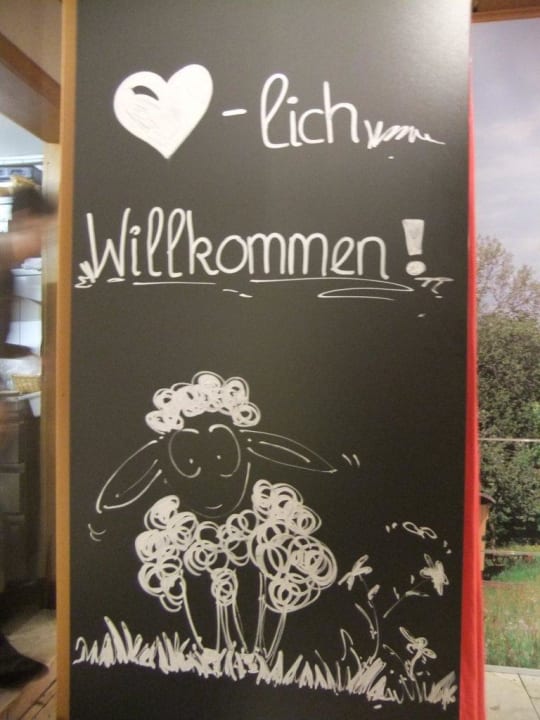 ♥-lich
Willkommen!